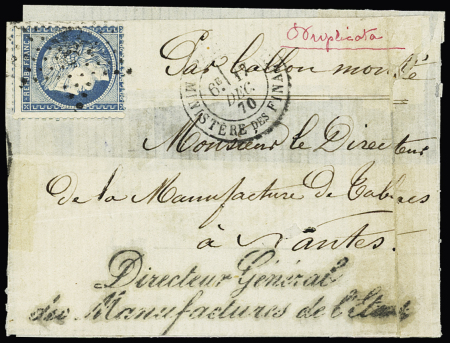 Duplicata
REPUB. FRANC.
Par ballon monté
6E 17
DEC.
70
MINISTERE DES FINANCES
Monsieur le Directeur
de la Manufacture de Tabacs
à Nantes.
Directeur Général
des Manufactures de l'Etat